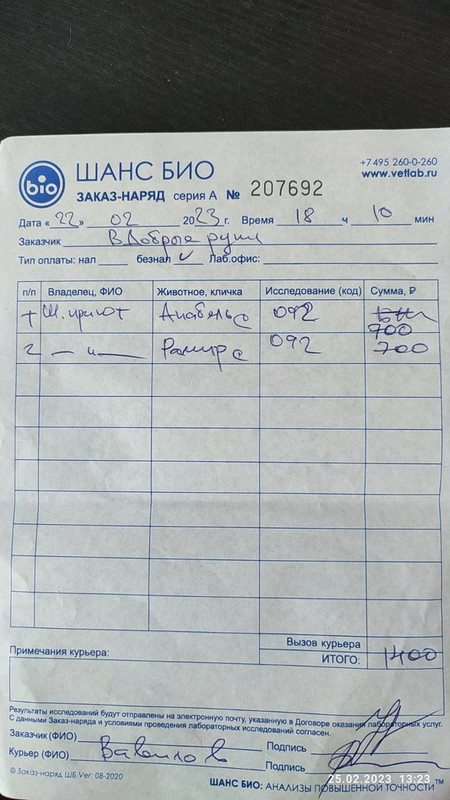 bio
ШАНС БИО
+7 495 260-0-260
www.vetlab.ru
ЗАКАЗ-НАРЯД серия А № 207692
Дата «22» 02 2023 г. Время 18 ч 10 мин
Заказчик В Добрые руки
Тип оплаты: нал безнал ✓ Лаб.офис:
п/п Владелец, ФИО Животное, кличка Исследование (код) Сумма, ₽
Ш. приют Анабель с 092 700
2 — " — Рамир с 092 700
Вызов курьера
Примечания курьера: ИТОГО: 1400
Результаты исследований будут отправлены на электронную почту, указанную в Договоре оказания лабораторных услуг.
С данными Заказ-наряда и условиями проведения лабораторных исследований согласен.
Заказчик (ФИО) Подпись
Курьер (ФИО) Вавилов Подпись
© Заказ-наряд ШБ Ver. 08-2020
25.02.2023 13:23
ШАНС БИО: АНАЛИЗЫ ПОВЫШЕННОЙ ТОЧНОСТИ™